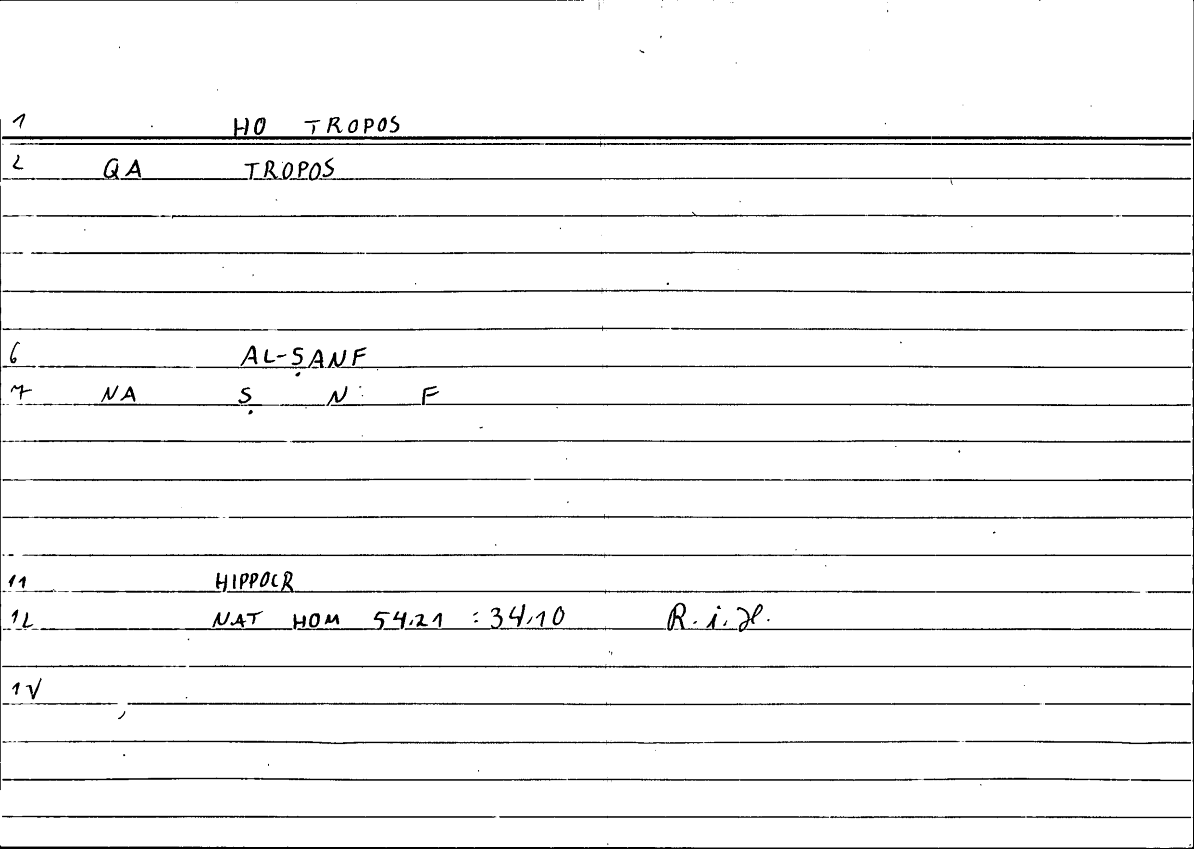 1 HO TROPOS
2 QA TROPOS
6 AL-ṢANF
7 NA Ṣ N F
11 HIPPOCR
12 NAT HOM 54,21 : 34,10 R. i. H.
1V